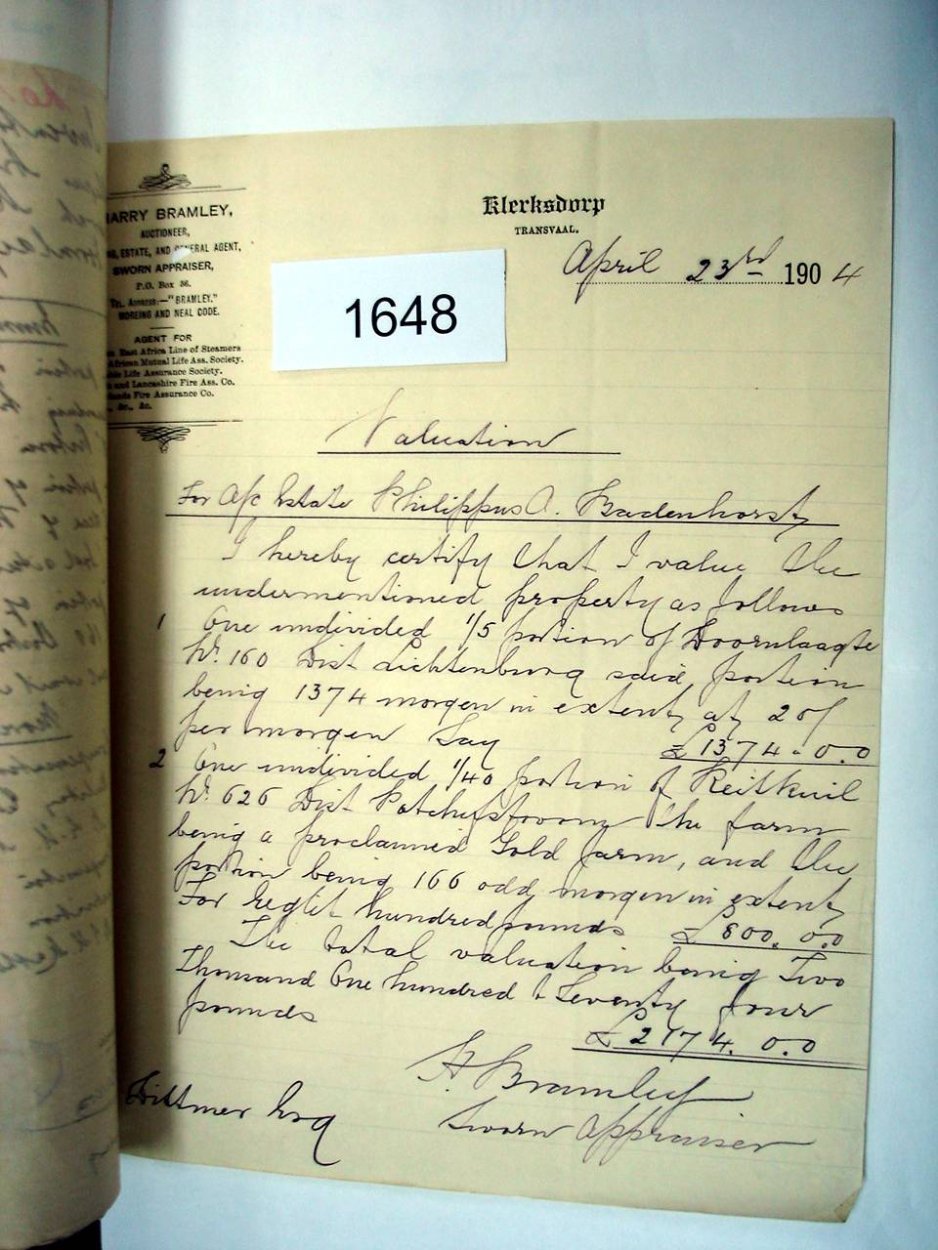 HARRY BRAMLEY,
AUCTIONEER,
ESTATE, AND GENERAL AGENT,
SWORN APPRAISER,
P.O. Box 36.
TEL. ADDRESS:—"BRAMLEY."
MOREING AND NEAL CODE.
AGENT FOR
East Africa Line of Steamers
African Mutual Life Ass. Society.
Life Assurance Society.
and Lancashire Fire Ass. Co.
Fire Assurance Co.
&c., &c.
Klerksdorp
TRANSVAAL.
April 23rd 1904
1648
Valuation
For A/c Estate Philippus A. Badenhorst
I hereby certify that I value the
undermentioned property as follows
1 One undivided 1/5 portion of Doornlaagte
No. 160 Dist Lichtenburg said portion
being 1374 morgen in extent at 20/
per morgen Say £1374.0.0
2 One undivided 1/40 portion of Reitkuil
No. 626 Dist Potchefstroom the farm
being a proclaimed Gold farm, and the
portion being 166 odd morgen in extent
For Eight hundred pounds £800.0.0
The total valuation being Two
Thousand One hundred & Seventy four
pounds £2174.0.0
H Bramley
Sworn Appraiser
Dittmer Esq